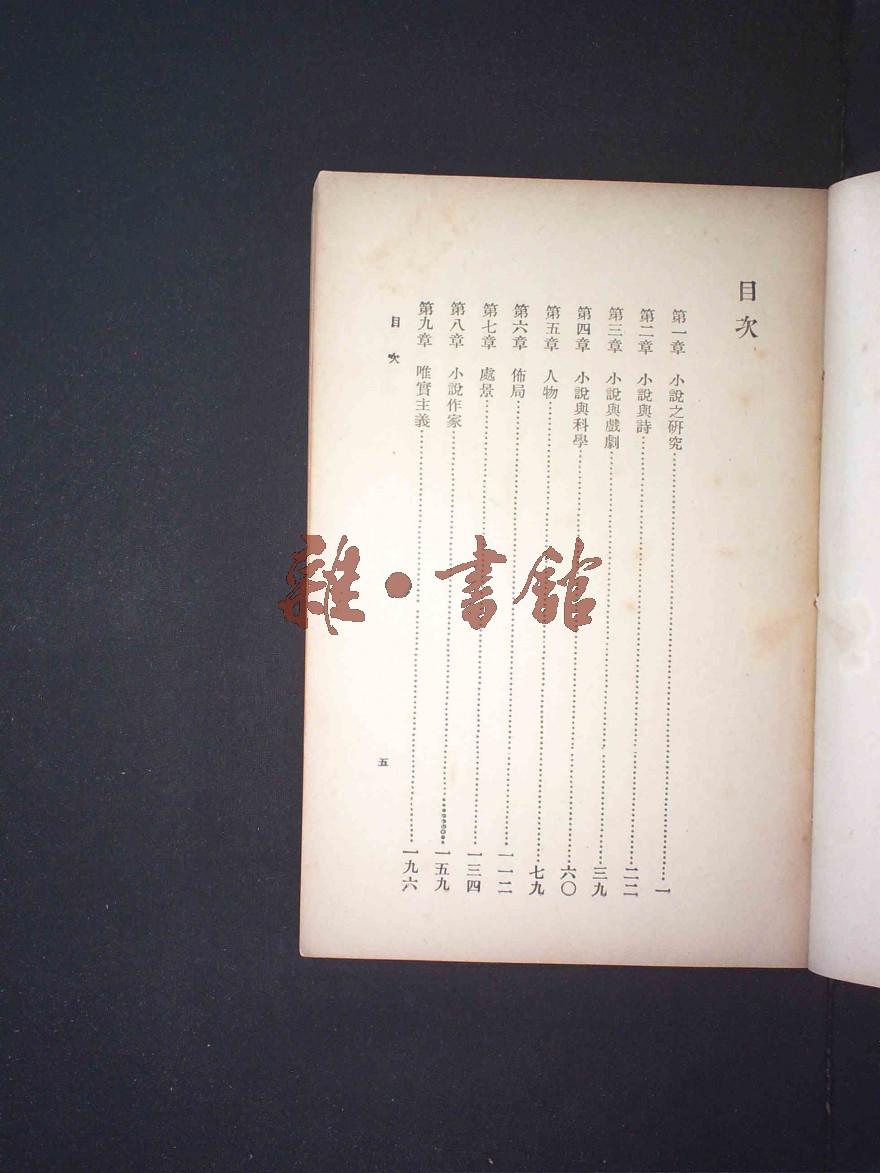 目次
第一章 小說之研究……一
第二章 小說與詩……二二
第三章 小說與戲劇……三九
第四章 小說與科學……六〇
第五章 人物……七九
第六章 佈局……一一二
第七章 處景……一三四
第八章 小說作家……一五九
第九章 唯實主義……一九六
目次
五
雜·書館